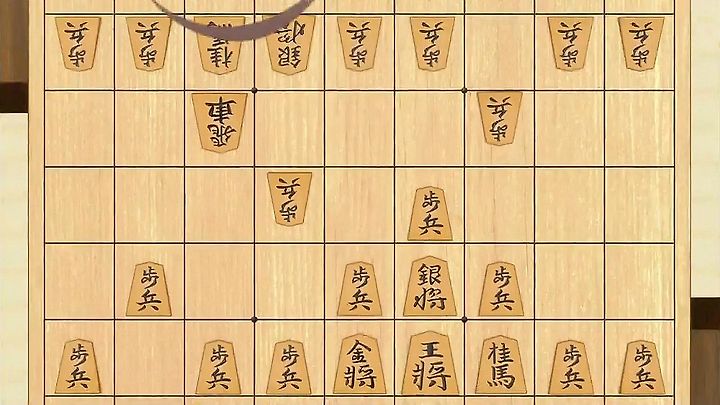 歩兵 歩兵 桂馬 銀将 歩兵 歩兵 歩兵 歩兵
飛車 歩兵
歩兵 歩兵
歩兵 歩兵 銀将 歩兵
歩兵 歩兵 歩兵 金将 王将 桂馬 歩兵 歩兵